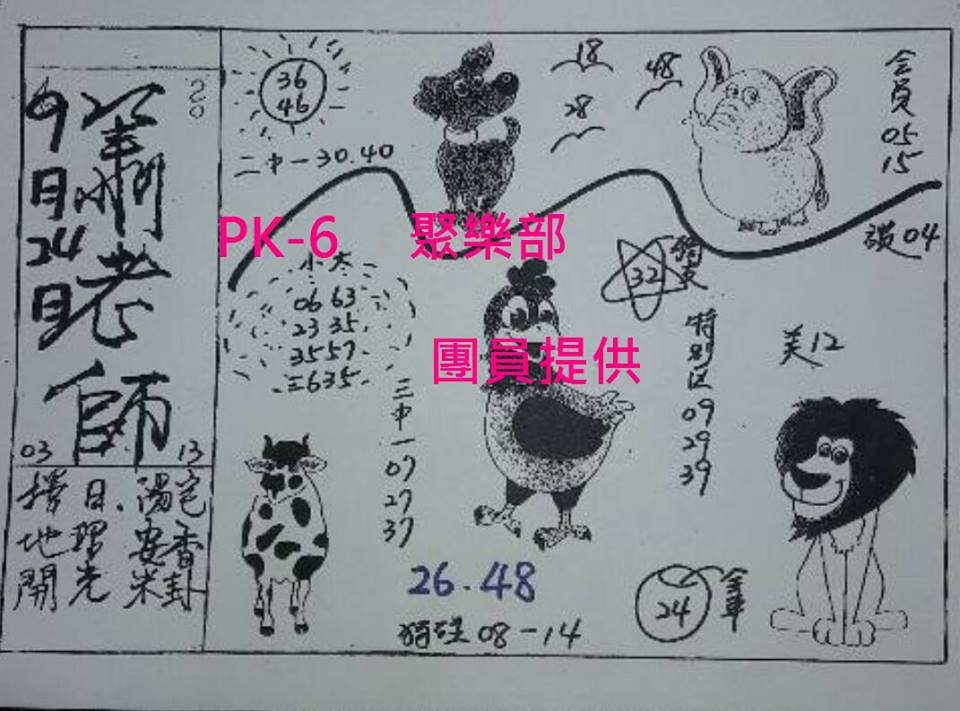 20
9月24日
老師
03
13
擇日.陽宅
地理 安香
開光 米卦
36
46
二中一30.40
18
28
48
会員
05
15
04
PK-6 聚樂部
小太
06 63
23 35
3557
三635
32
特別区
09
29
39
美12
團員提供
三中一
07
27
37
26.48
08-14
24